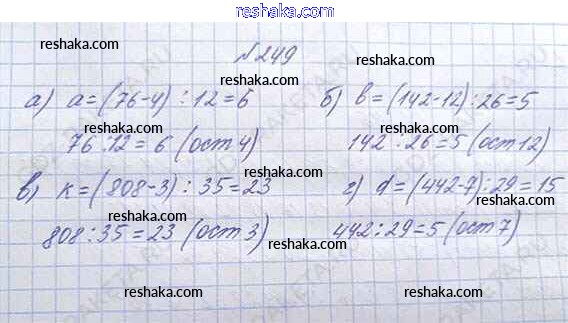 reshaka.com
reshaka.com reshaka.com
№249
а) a=(76-4) : 12=6 б) b=(142-12):26=5
reshaka.com reshaka.com
76:12= 6 (ост 4) 142 : 26=5 (ост 12)
reshaka.com
в) к=(808-3) : 35=23 г) d=(442-7):29=15
reshaka.com reshaka.com
808:35=23 (ост 3) 442:29=5 (ост 7)
reshaka.com reshaka.com
reshaka.com reshaka.com